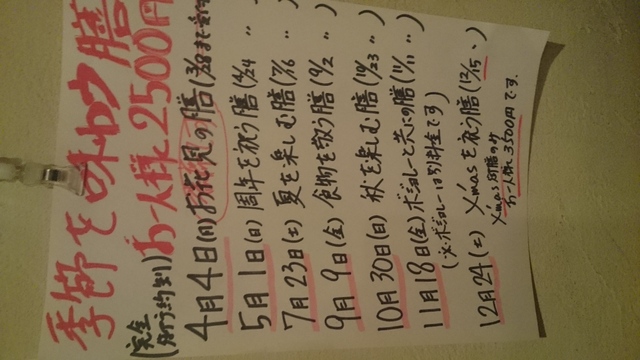 季節を味わう膳
(完全予約制) お一人様 2500円
4月4日(月) お花見の膳 (3/28まで
5月1日(日) 周年を祝う膳 (4/24 〃)
7月23日(土) 夏を楽しむ膳 (7/16 〃)
9月9日(金) 食物を敬う膳 (9/2 〃)
10月30日(日) 秋を楽しむ膳 (10/23 〃)
11月18日(金) ボジョレーと共にの膳 (11/11 〃)
(※ボジョレーは別料金です)
12月24(土) X'masを祝う膳 (12/15 〃)
X'mas 膳のみ
お一人様 3500円です.